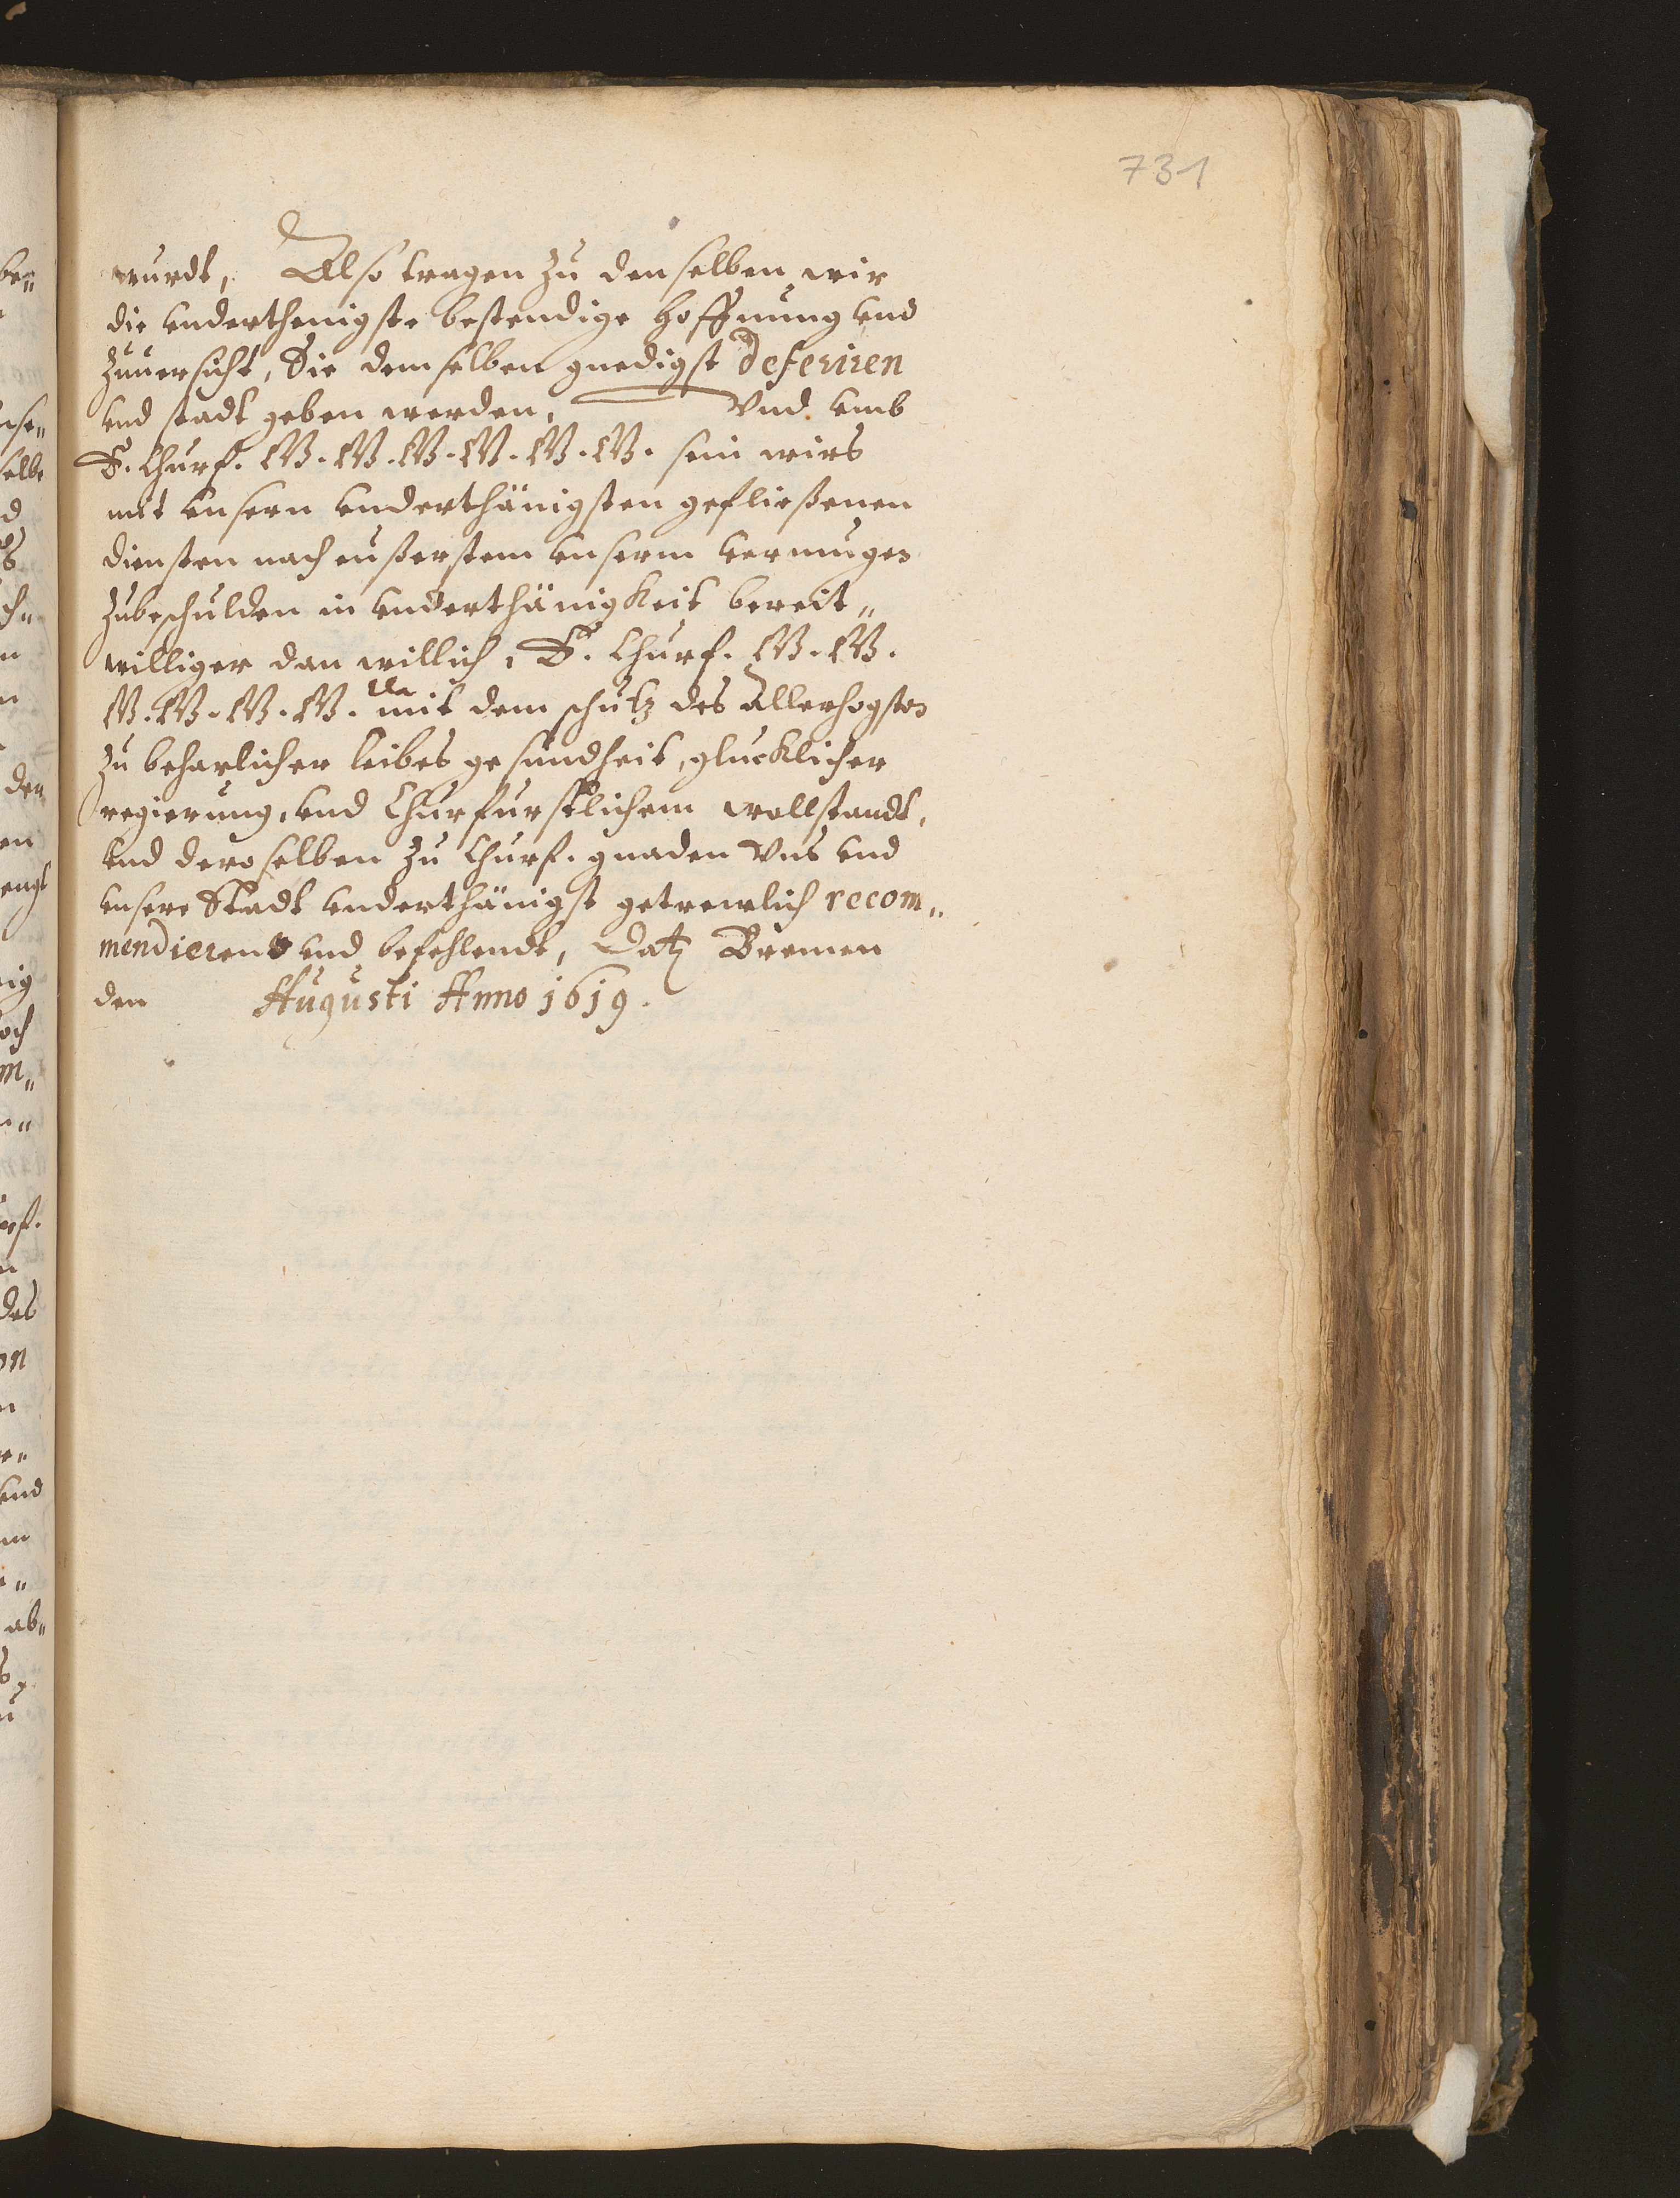 731
wurdt, Also tragen zu denselben wir
die underthenigste bestendige hoffnung und
zuuersicht, Sie demselben gnedigst deferiren
und stadt geben werden, Vnd umb
E. Churf. GG. GG. GG. GG. GG. GG. sein wirs
mit unsern underthänigsten gefließenen
diensten nach eußerstem unserm vermugen
zubeschulden in underthänigkeit bereit„
williger dan willich, E. Churf. GG. GG.
GG. GG. GG. GG. mit dem schutz des Allerhogsten
zu beharlicher leibes gesundheit, glucklicher
regierung, und Churfurstlichem wollstandt,
und deroselben zu Churf. gnaden Vns und
unsere Stadt underthänigst getrewlich recom„
mendierend und befehlendt, Datz Bremen
den Augusti Anno 1619.